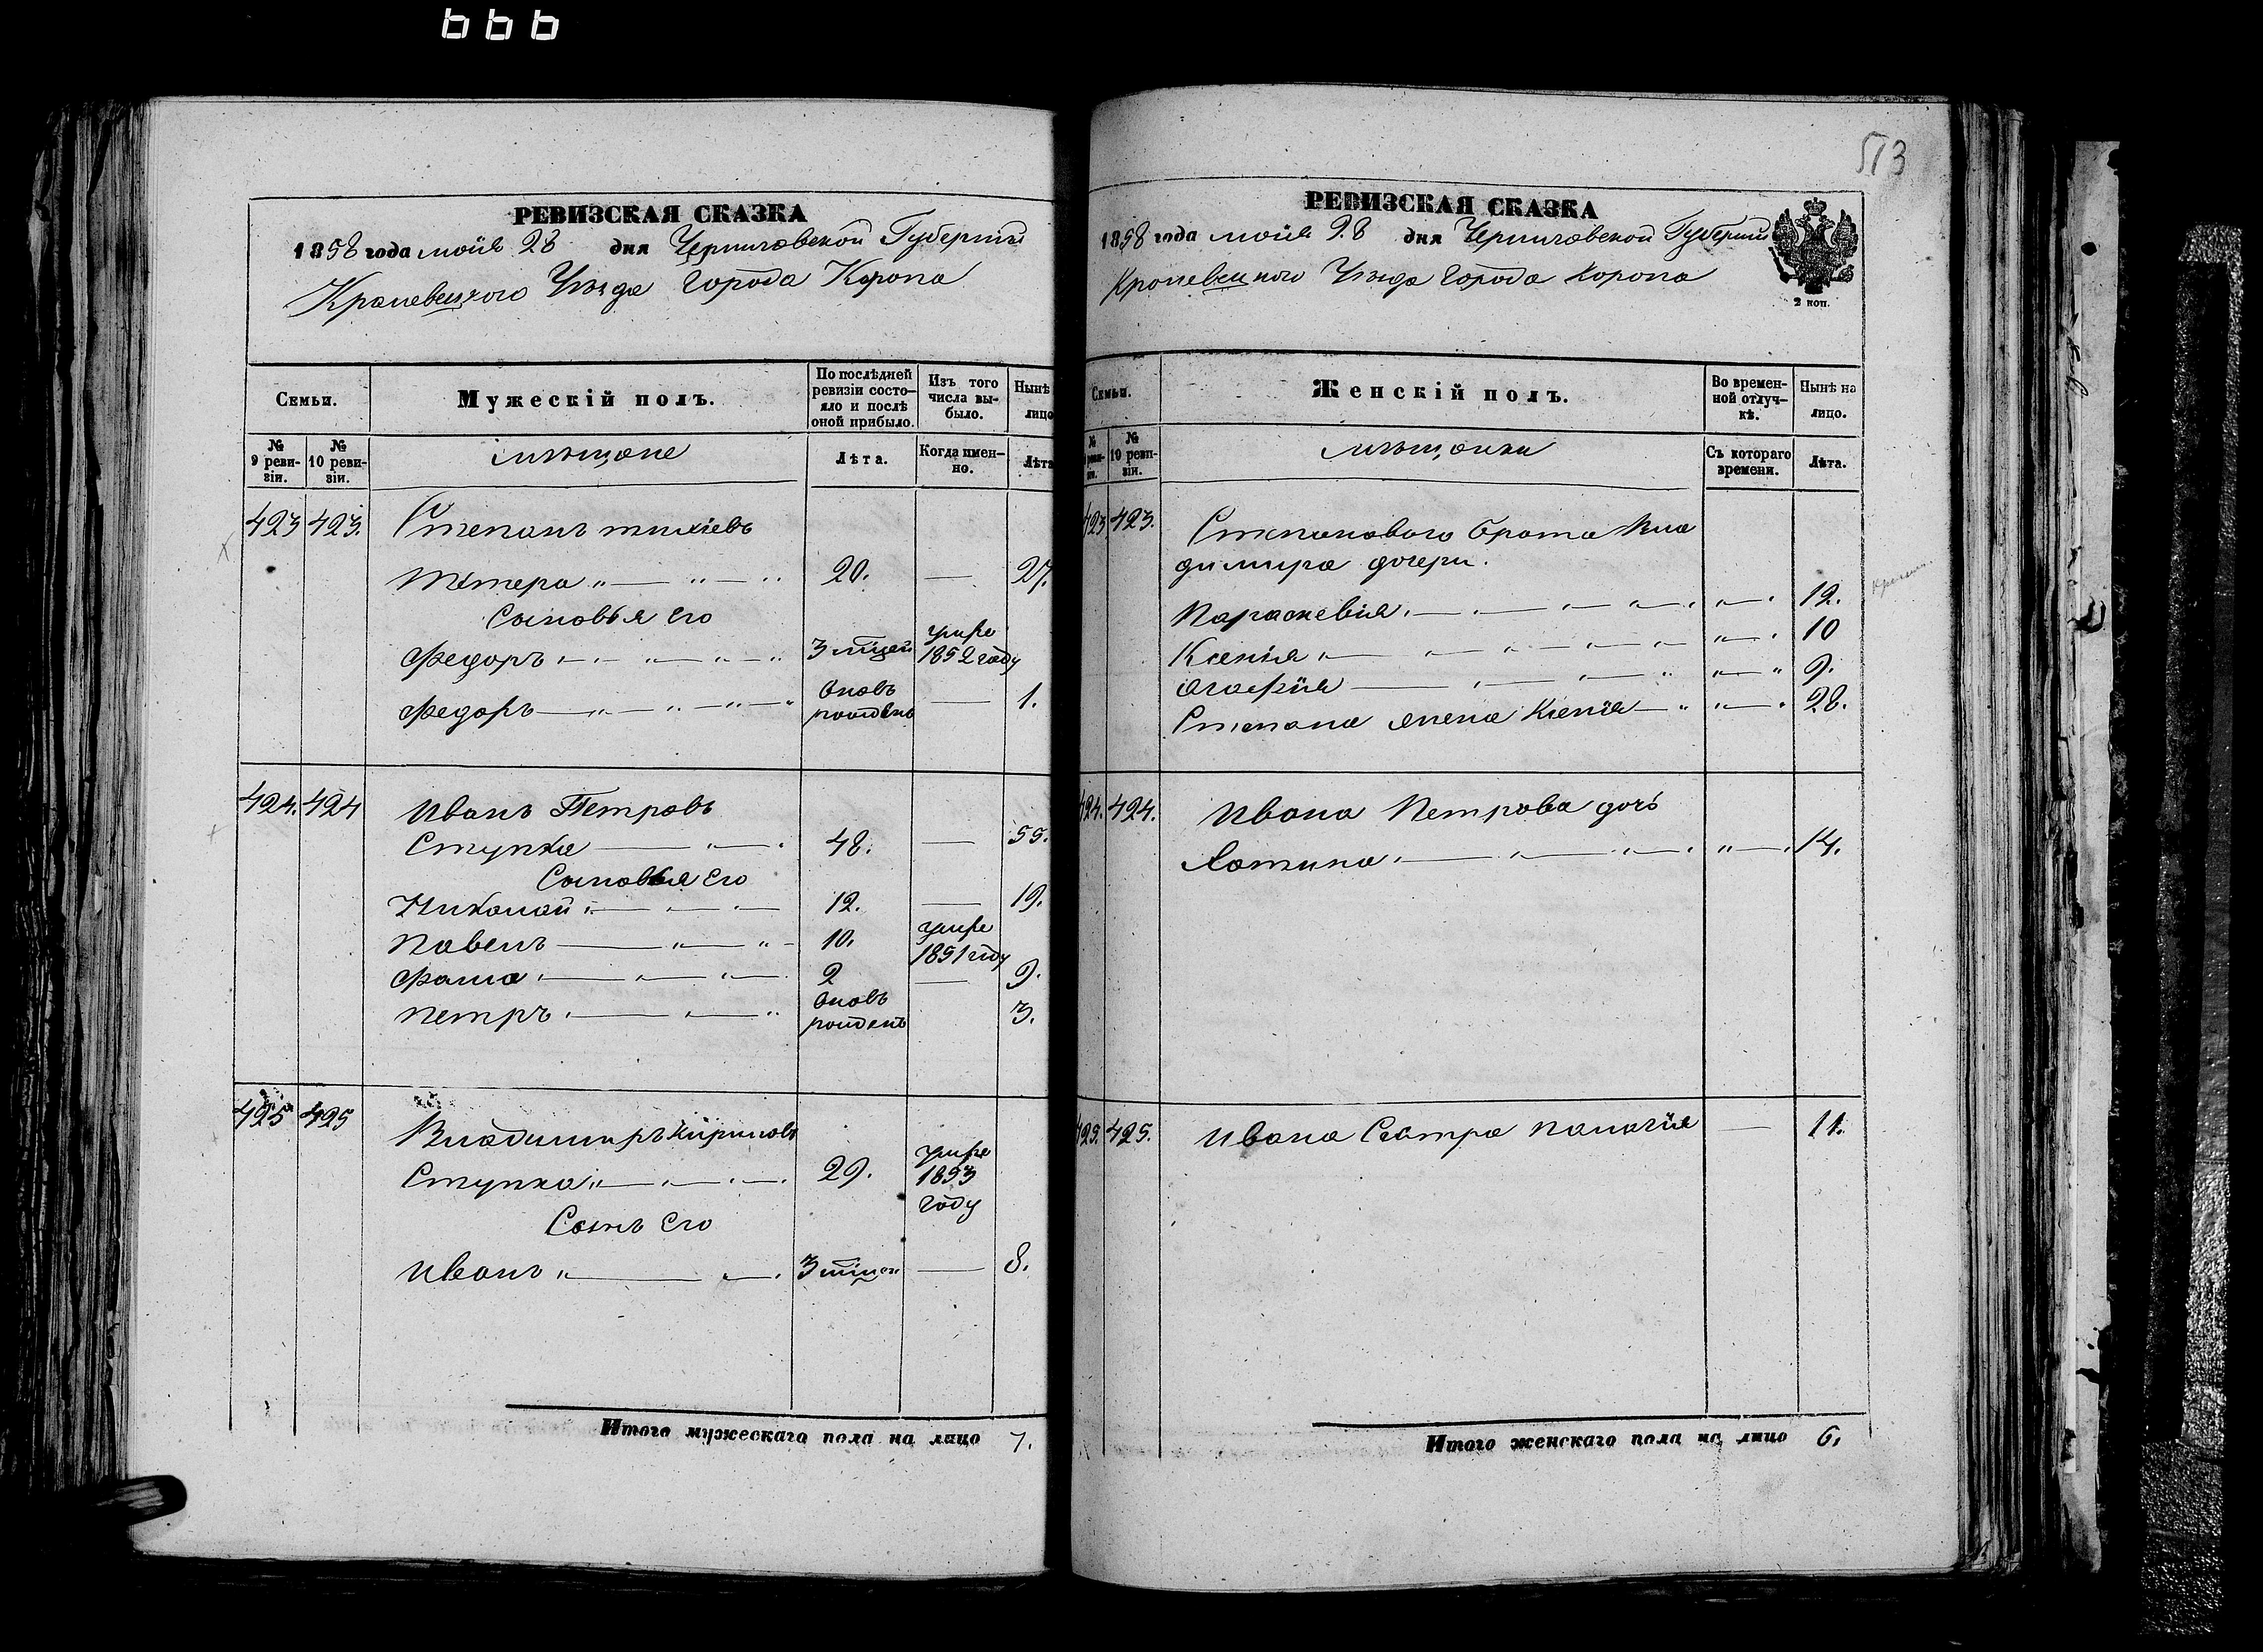 666
513
РЕВИЗСКАЯ СКАЗКА
1858 года мая 28 дня Черниговской Губернии
Кролевецкого Уѣзда Города Коропа
Семьи.
Мужескій полъ.
По послѣдней ревизіи состояло и послѣ оной прибыло.
Изъ того числа выбыло.
Нынѣ лицо
№ 9 ревизіи.
№ 10 ревизіи.
мѣщане
Лѣта.
Когда именно.
Лѣта
423 423. Степанъ
20. — 27.
Сыновья его
Федоръ 3 мцей умре 1852 году
Федоръ вновь рожденъ — 1.
424. 424 Иванъ Петровъ
Ступка 48. — 55.
Сыновья его
Николай 12. — 19.
Павелъ 10. умре 1851 году
Фома 2 — 9.
Петръ вновь рожденъ 3.
425 425 Владимиръ Кириловъ
Ступка 29. умре 1853 году
Сынъ его
Иванъ 3 — 8.
Итого мужескаго пола на лицо 7.
РЕВИЗСКАЯ СКАЗКА
1858 года мая 28 дня Черниговской Губернии
Кролевецкого Уѣзда Города Коропа
2 коп.
Семьи.
Женскій полъ.
Во временной отлучкѣ.
Нынѣ на лицо.
№ 10 ревизіи.
мѣщанки
Съ котораго времени.
Лѣта.
423 423. Степанового брата Вла
димира дочери.
Параскевія 12.
Ксенія 10
Агафія 9.
Степана жена Ксенія 28.
424. 424. Ивана Петрова дочь
14.
425. 425. Ивана Сестра Палагія — 11.
Итого женскаго пола на лицо 6.